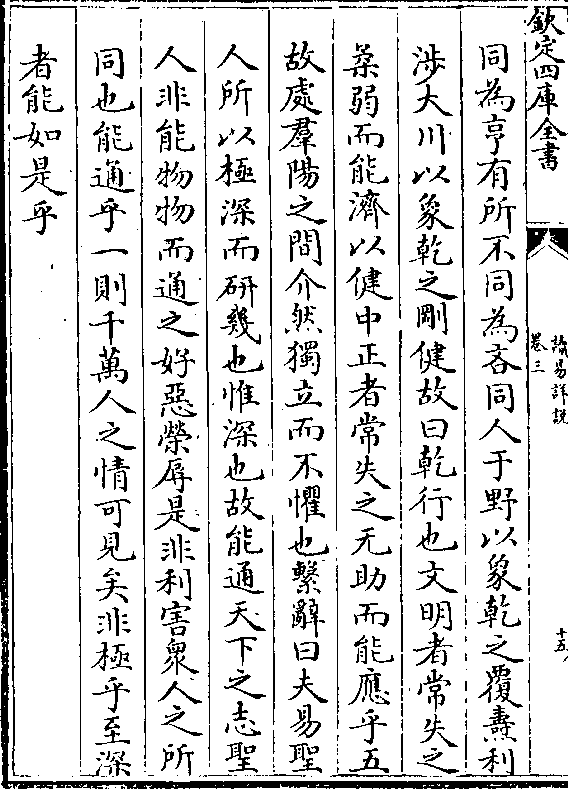 欽定四庫全書
讀易詳說
卷三
十五
同為亨有所不同為吝同人于野以象乾之覆燾利
涉大川以象乾之剛健故曰乾行也文明者常失之
柔弱而能濟以健中正者常失之无助而能應乎五
故處羣陽之間介然獨立而不懼也繫辭曰夫易聖
人所以極深而研幾也惟深也故能通天下之志聖
人非能物物而通之好惡榮辱是非利害衆人之所
同也能通乎一則千萬人之情可見矣非極乎至深
者能如是乎